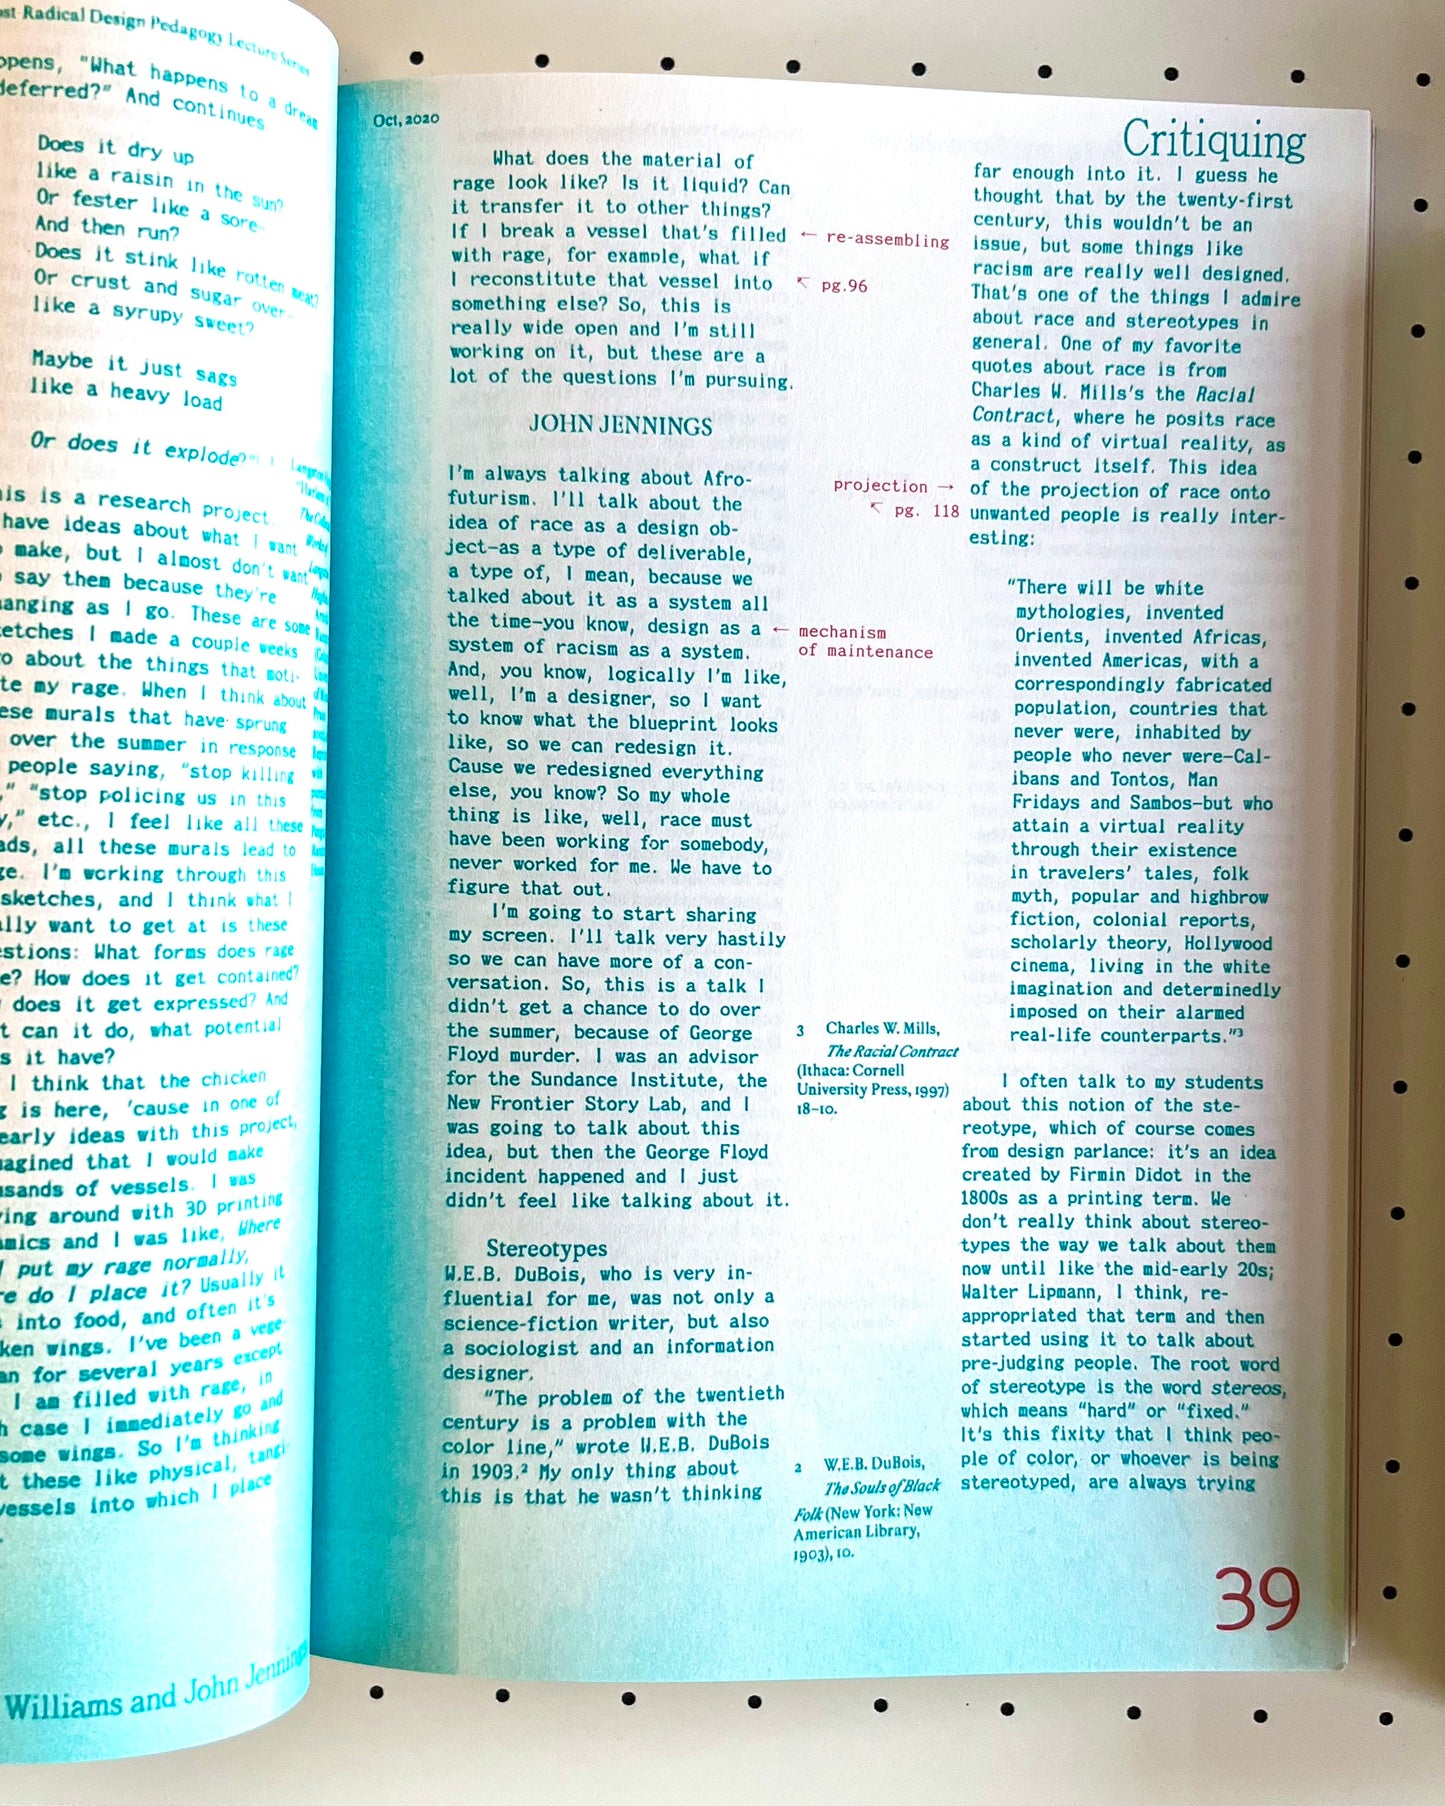 Radical Design Pedagogy Lecture Series
"What happens to a dream
deferred?" And continues
Does it dry up
like a raisin in the sun?
Or fester like a sore—
And then run?
Does it stink like rotten meat?
Or crust and sugar over—
like a syrupy sweet?
Maybe it just sags
like a heavy load
Or does it explode?"¹
is a research project
have ideas about what I want
make, but I almost don't want
say them because they're
as I go. These are some
I made a couple weeks
about the things that moti-
my rage. When I think about
murals that have sprung
over the summer in response
people saying, "stop killing
"stop policing us in this
etc., I feel like all these
all these murals lead to
I'm working through this
sketches, and I think what I
want to get at is these
What forms does rage
How does it get contained?
does it get expressed? And
can it do, what potential
it have?
I think that the chicken
is here, 'cause in one of
early ideas with this project,
that I would make
of vessels. I was
around with 3D printing
and I was like, Where
put my rage normally,
do I place it? Usually it
into food, and often it's
wings. I've been a vege-
for several years except
I am filled with rage, in
case I immediately go and
some wings. So I'm thinking
these like physical, tangi-
vessels into which I place
Williams and John Jennings
Oct, 2020
Critiquing
What does the material of
rage look like? Is it liquid? Can
it transfer it to other things?
If I break a vessel that's filled
with rage, for example, what if
I reconstitute that vessel into
something else? So, this is
really wide open and I'm still
working on it, but these are a
lot of the questions I'm pursuing.
← re-assembling
↖ pg.96
JOHN JENNINGS
I'm always talking about Afro-
futurism. I'll talk about the
idea of race as a design ob-
ject—as a type of deliverable,
a type of, I mean, because we
talked about it as a system all
the time—you know, design as a
system of racism as a system.
And, you know, logically I'm like,
well, I'm a designer, so I want
to know what the blueprint looks
like, so we can redesign it.
Cause we redesigned everything
else, you know? So my whole
thing is like, well, race must
have been working for somebody,
never worked for me. We have to
figure that out.
← mechanism
of maintenance
I'm going to start sharing
my screen. I'll talk very hastily
so we can have more of a con-
versation. So, this is a talk I
didn't get a chance to do over
the summer, because of George
Floyd murder. I was an advisor
for the Sundance Institute, the
New Frontier Story Lab, and I
was going to talk about this
idea, but then the George Floyd
incident happened and I just
didn't feel like talking about it.
Stereotypes
W.E.B. DuBois, who is very in-
fluential for me, was not only a
science-fiction writer, but also
a sociologist and an information
designer.
"The problem of the twentieth
century is a problem with the
color line," wrote W.E.B. DuBois
in 1903.² My only thing about
this is that he wasn't thinking
3 Charles W. Mills,
The Racial Contract
(Ithaca: Cornell
University Press, 1997)
18–10.
2 W.E.B. DuBois,
The Souls of Black
Folk (New York: New
American Library,
1903), 10.
far enough into it. I guess he
thought that by the twenty-first
century, this wouldn't be an
issue, but some things like
racism are really well designed.
That's one of the things I admire
about race and stereotypes in
general. One of my favorite
quotes about race is from
Charles W. Mills's the Racial
Contract, where he posits race
as a kind of virtual reality, as
a construct itself. This idea
of the projection of race onto
unwanted people is really inter-
esting:
projection →
↖ pg. 118
"There will be white
mythologies, invented
Orients, invented Africas,
invented Americas, with a
correspondingly fabricated
population, countries that
never were, inhabited by
people who never were—Cal-
ibans and Tontos, Man
Fridays and Sambos—but who
attain a virtual reality
through their existence
in travelers' tales, folk
myth, popular and highbrow
fiction, colonial reports,
scholarly theory, Hollywood
cinema, living in the white
imagination and determinedly
imposed on their alarmed
real-life counterparts."³
I often talk to my students
about this notion of the ste-
reotype, which of course comes
from design parlance: it's an idea
created by Firmin Didot in the
1800s as a printing term. We
don't really think about stereo-
types the way we talk about them
now until like the mid-early 20s;
Walter Lipmann, I think, re-
appropriated that term and then
started using it to talk about
pre-judging people. The root word
of stereotype is the word stereos,
which means "hard" or "fixed."
It's this fixity that I think peo-
ple of color, or whoever is being
stereotyped, are always trying
39